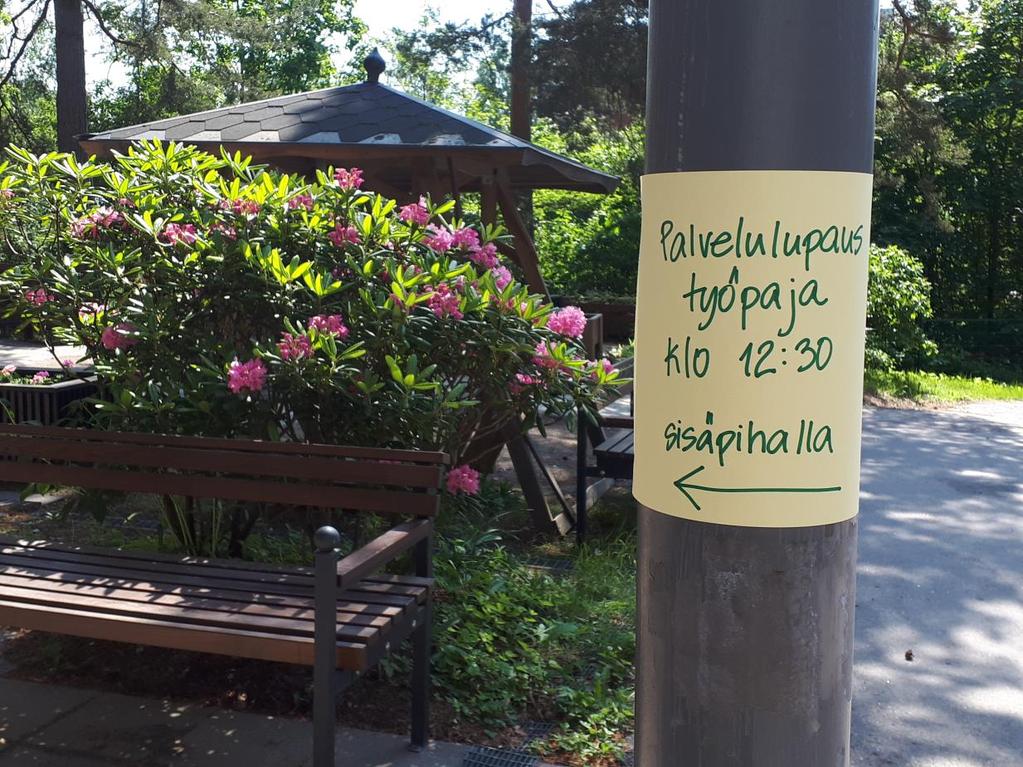 Palvelulupaus
työpaja
klo 12:30
sisäpihalla